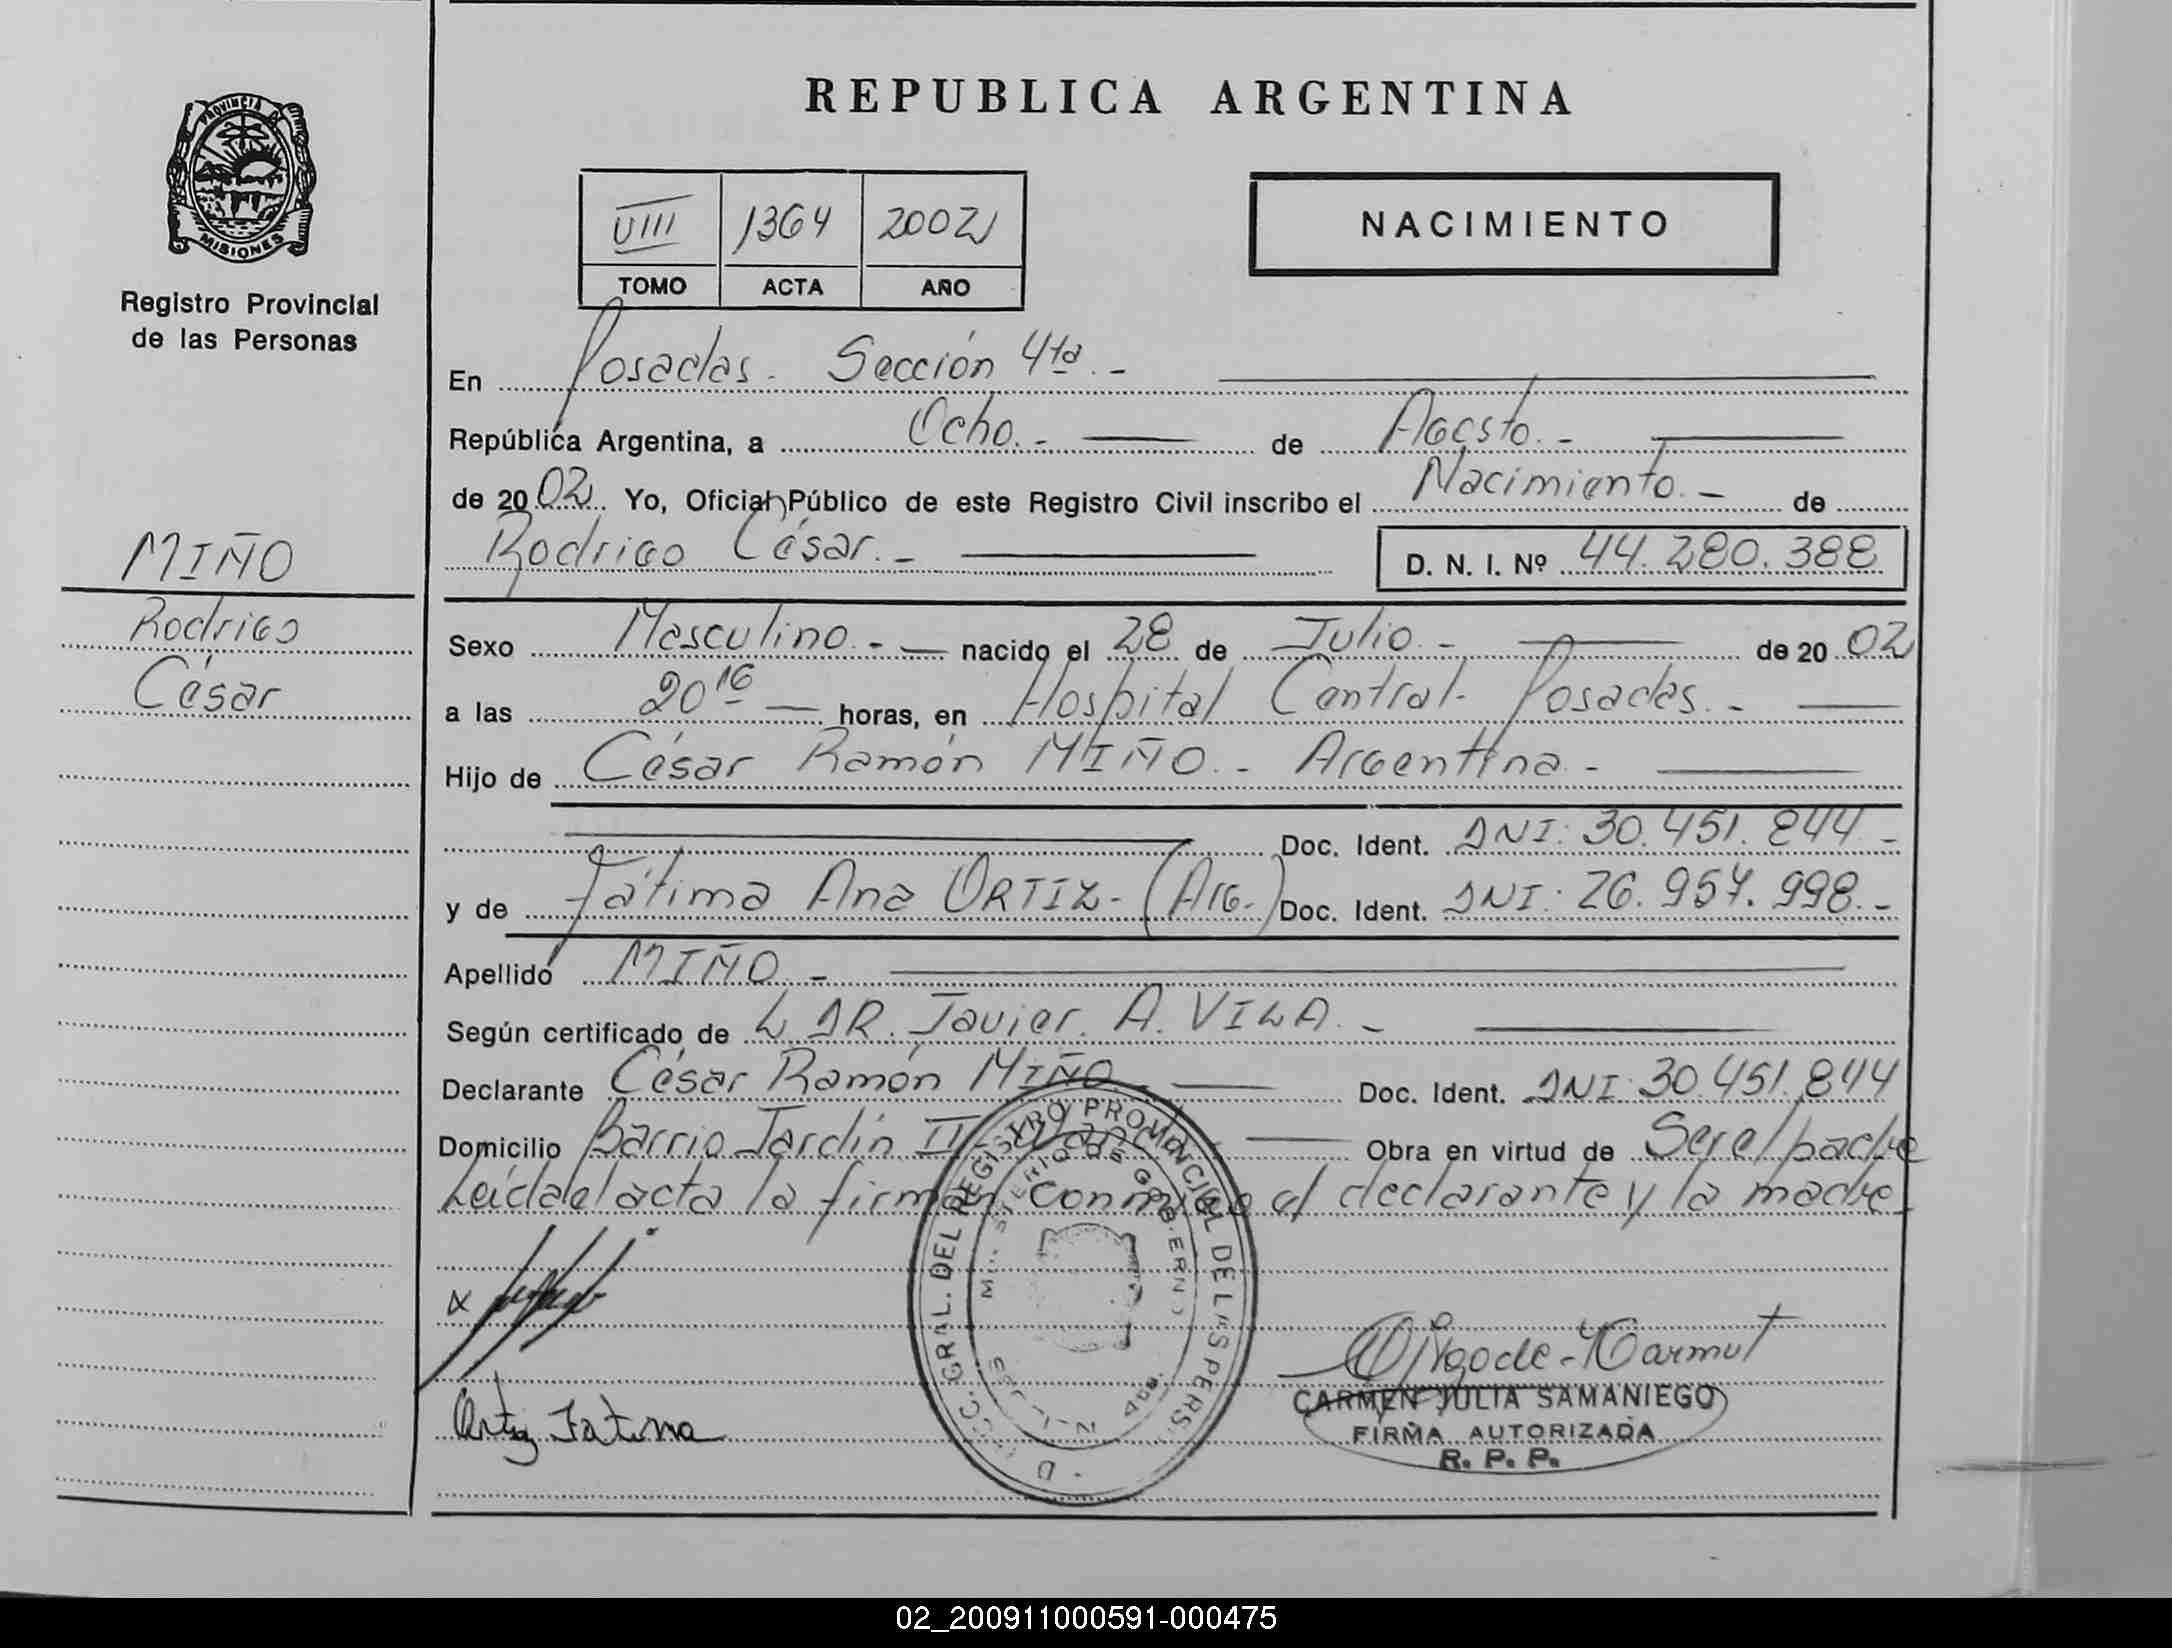 REPUBLICA ARGENTINA
PROVINCIA DE
MISIONES
Registro Provincial
de las Personas
VIII 1364 2002
TOMO ACTA AÑO
NACIMIENTO
En Posadas. Sección 4ta.-
República Argentina, a Ocho.- de Agosto.-
de 2002 Yo, Oficial Público de este Registro Civil inscribo el Nacimiento.- de
Rodrigo César.- D. N. I. Nº 44.280.388
MIÑO
Rodrigo
César
Sexo Masculino.- nacido el 28 de Julio.- de 2002
a las 20 16 horas, en Hospital Central- Posadas.-
Hijo de César Ramón MIÑO.- Argentina.-
Doc. Ident. DNI: 30.451.844-
y de Fátima Ana ORTIZ- (Arg.) Doc. Ident. DNI: 26.957.998.-
Apellido MIÑO.-
Según certificado de L DR. Javier. A. VILA.-
Declarante César Ramón MIÑO.- Doc. Ident. DNI: 30.451.844
Domicilio Barrio Jardín II- Obra en virtud de Ser el padre
Leida el acta la firman conmigo el declarante y la madre.
Ortiz Fatima
CARMEN JULIA SAMANIEGO
FIRMA AUTORIZADA
R. P. P.
02_200911000591-000475